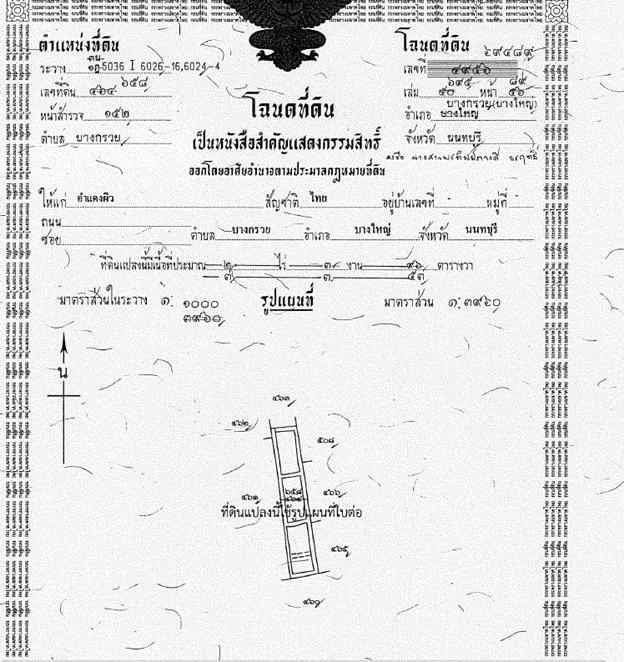 ตำแหน่งที่ดิน
โฉนดที่ดิน
๖๙๔๘๙
ระวาง 5036 I 6026-16,6024-4
เลขที่ ๔๙๕๖
๖๕๘
๖๙๕ ๘๙
เลขที่ดิน ๔๖๔
เล่ม ๕๐ หน้า ๕๖
โฉนดที่ดิน
บางกรวย(บางใหญ่)
หน้าสำรวจ ๑๕๒
อำเภอ บางใหญ่
ตำบล บางกรวย
เป็นหนังสือสำคัญแสดงกรรมสิทธิ์
จังหวัด นนทบุรี
ออกโดยอาศัยอำนาจตามประมวลกฎหมายที่ดิน
ให้แก่ อำแดงผิว สัญชาติ ไทย อยู่บ้านเลขที่ หมู่ที่
ถนน
ซอย ตำบล บางกรวย อำเภอ บางใหญ่ จังหวัด นนทบุรี
ที่ดินแปลงนี้มีเนื้อที่ประมาณ ๒ ไร่ ๓ งาน ๙๖ ตารางวา
๓ ๓ ๕๓
มาตราส่วนในระวาง ๑: ๑๐๐๐ รูปแผนที่ มาตราส่วน ๑:๓๙๖๐
๓๙๖๐
น
๔๖๓
๔๖๒
๕๐๘
๔๖๑ ๖๕๘ ๔๖๖
๔๖๔
ที่ดินแปลงนี้ใช้รูปแผนที่ใบต่อ
๔๖๕
๔๖๐